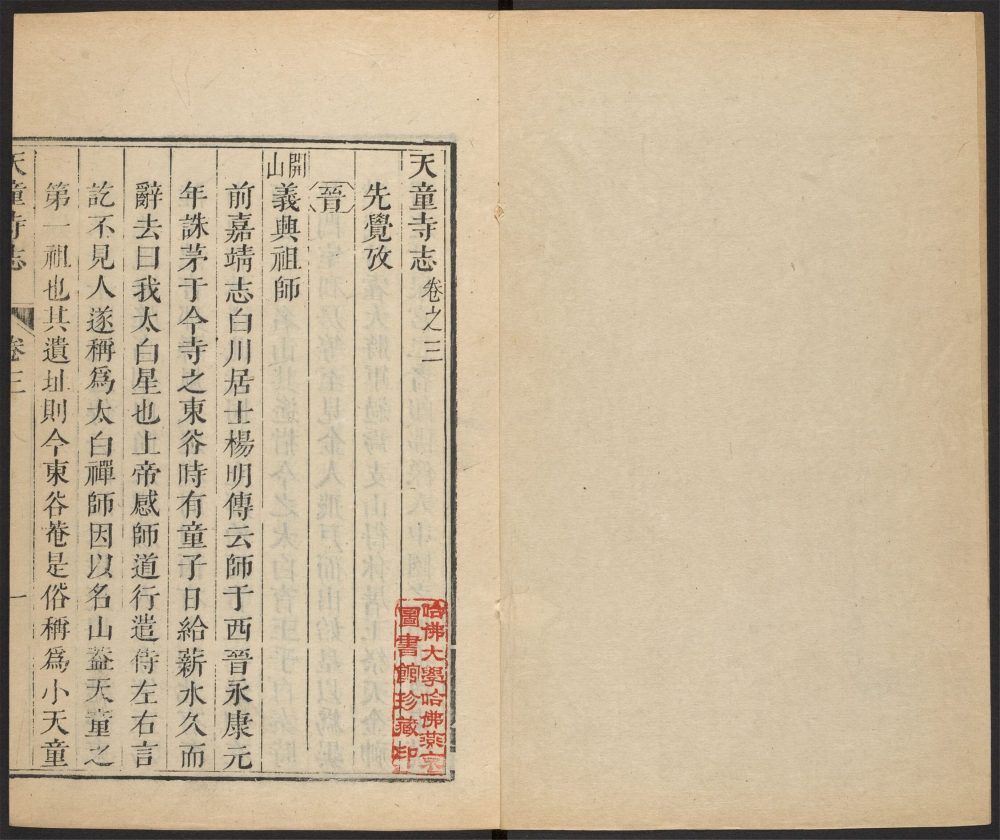 天童寺志卷之三
先覺攷
晉
開山
義興祖師
前嘉靖志白川居士楊明傳云師于西晉永康元
年誅茅于今寺之東谷時有童子日給薪水久而
辭去曰我太白星也上帝感師道行遣侍左右言
訖不見人遂稱爲太白禪師因以名山蓋天童之
第一祖也其遺址則今東谷菴是俗稱爲小天童
天童寺志
卷三
一
哈佛大學哈佛燕京
圖書館珍藏印